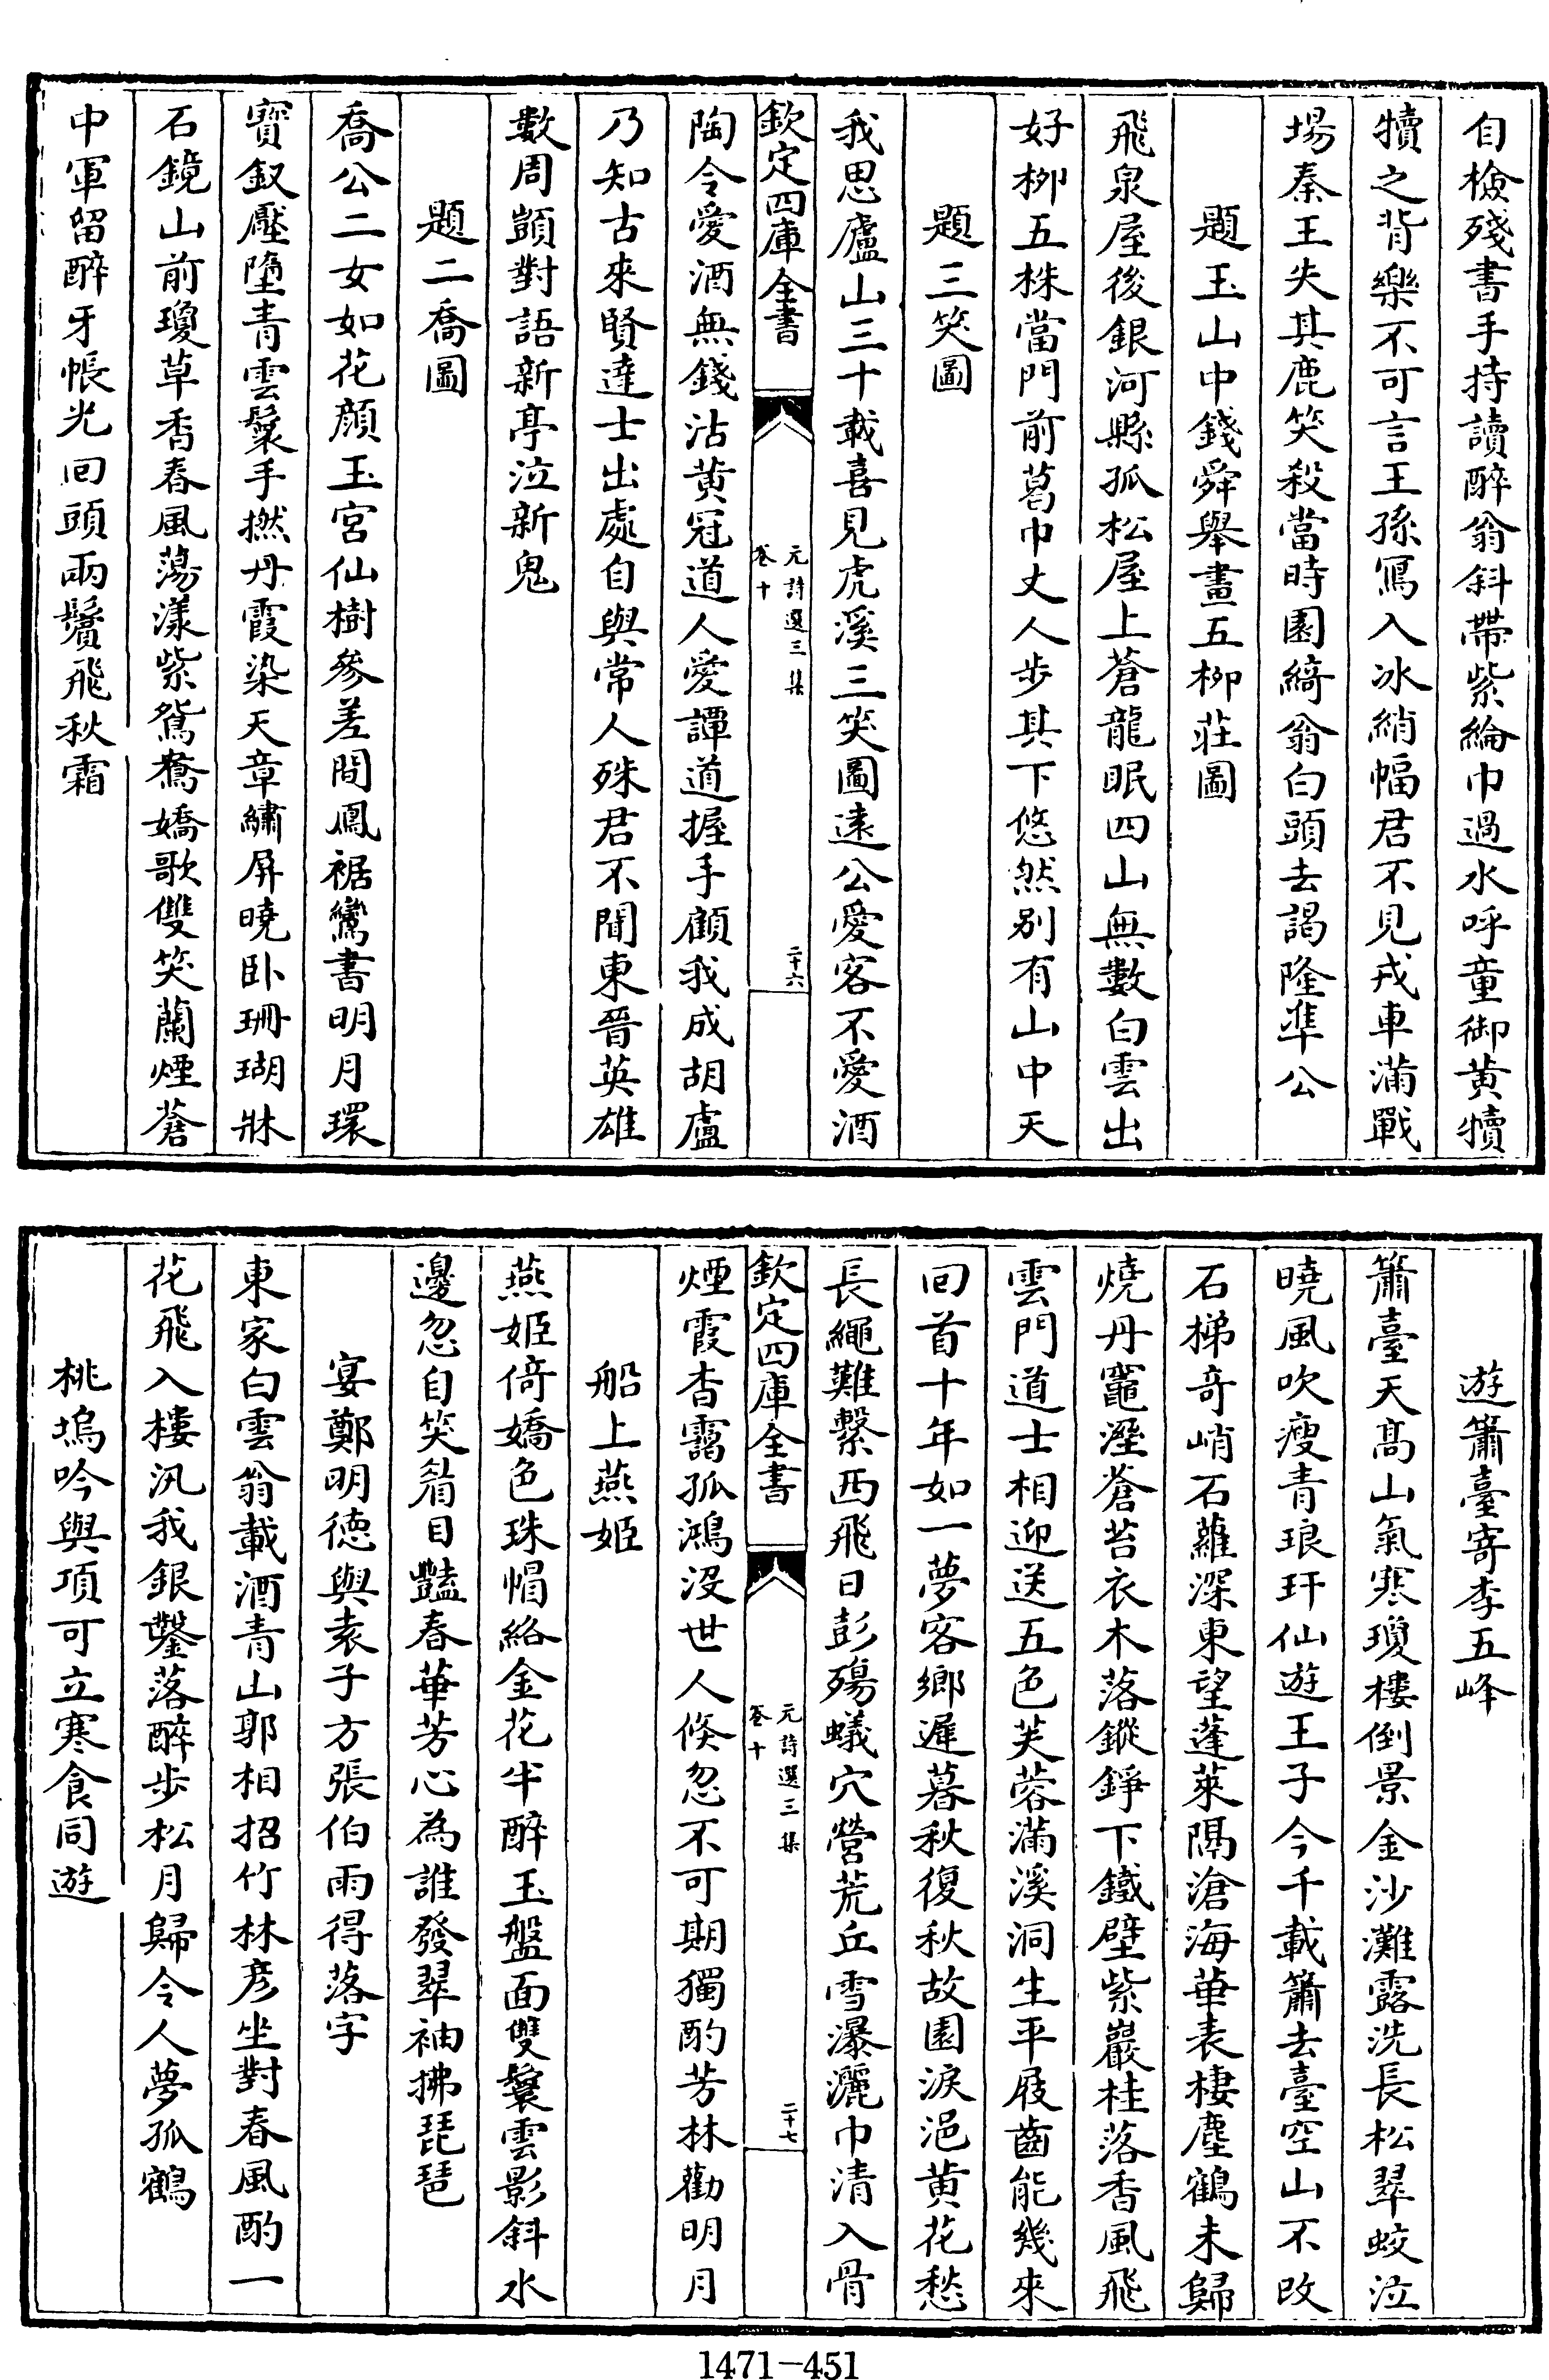 自檢殘書手持讀醉翁斜帶紫綸巾過水呼童御黄犢
犢之背樂不可言王孫寫入冰綃幅君不見戎車滿戰
場秦王失其鹿笑殺當時園綺翁白頭去謁隆準公
題玉山中錢舜舉畫五柳莊圖
飛泉屋後銀河縣孤松屋上蒼龍眠四山無數白雲出
好柳五株當門前葛巾丈人步其下悠然别有山中天
題三笑圖
我思廬山三十載喜見虎溪三笑圖遠公愛客不愛酒
欽定四庫全書
元詩選三集
卷十
二十六
陶令愛酒無錢沽黄冠道人愛譚道握手顧我成胡盧
乃知古來賢達士出處自與常人殊君不聞東晉英雄
數周顗對語新亭泣新鬼
題二喬圖
喬公二女如花顔玉宮仙樹參差間鳳裾鸞書明月環
寶釵壓墮青雲鬟手撚丹霞染天章繡屏曉卧珊瑚牀
石鏡山前瓊草香春風蕩漾紫鴛鴦嬌歌雙笑蘭煙蒼
中軍留醉牙帳光回頭兩鬢飛秋霜
遊簫臺寄李五峰
簫臺天髙山氣寒瓊樓倒景金沙灘露洗長松翠蛟泣
曉風吹瘦青琅玕仙遊王子今千載簫去臺空山不改
石梯奇峭石蘿深東望蓬萊隔滄海華表棲塵鶴未歸
燒丹竈溼蒼苔衣木落鏦錚下鐵壁紫巖桂落香風飛
雲門道士相迎送五色芙蓉滿溪洞生平屐齒能幾來
回首十年如一夢客鄉遲暮秋復秋故園淚浥黄花愁
長繩難繫西飛日彭殤蟻穴營荒丘雪瀑灑巾清入骨
欽定四庫全書
元詩選三集
卷十
二十七
煙霞杳靄孤鴻没世人倏忽不可期獨酌芳林勸明月
船上燕姬
燕姬倚嬌色珠帽絡金花半醉玉盤面雙鬟雲影斜水
邊忽自笑眉目豔春華芳心為誰發翠袖拂琵琶
宴鄭明徳與袁子方張伯雨得落字
東家白雲翁載酒青山郭相招竹林彦坐對春風酌一
花飛入樓汎我銀鑿落醉步松月歸令人夢孤鶴
桃塢吟與項可立寒食同遊
1471-451